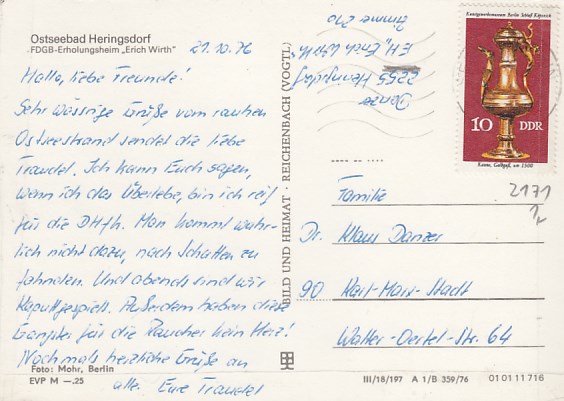 Ostseebad Heringsdorf
FDGB-Erholungsheim „Erich Wirth"
21.10.76
Hallo, liebe Freunde!
Sehr wässrige Grüße vom rauhen
Ostseestrand sendet die liebe
Traudel. Ich kann Euch sagen,
wenn ich das überlebe, bin ich reif
für die DHfK. Man kommt wahr-
lich nicht dazu, nach Schatten zu
fahnden. Und abends sind wir
kaputtgespielt. Außerdem haben diese
Gangster für die Raucher kein Herz!
Nochmals herzliche Grüße an
alle. Eure Traudel
Foto: Mohr, Berlin
EVP M —.25
BILD UND HEIMAT · REICHENBACH (VOGTL)
2255 Heringsdorf
Zimmer 210
Kunstgewerbemuseum Berlin Schloß Köpenick
10 DDR
Kanne, Gelbguß, um 1500
2171
Familie
Dr. Klaus Danzer
90 Karl-Marx-Stadt
Walter-Oertel-Str. 64
III/18/197 A 1/B 359/76 01 01 11 716